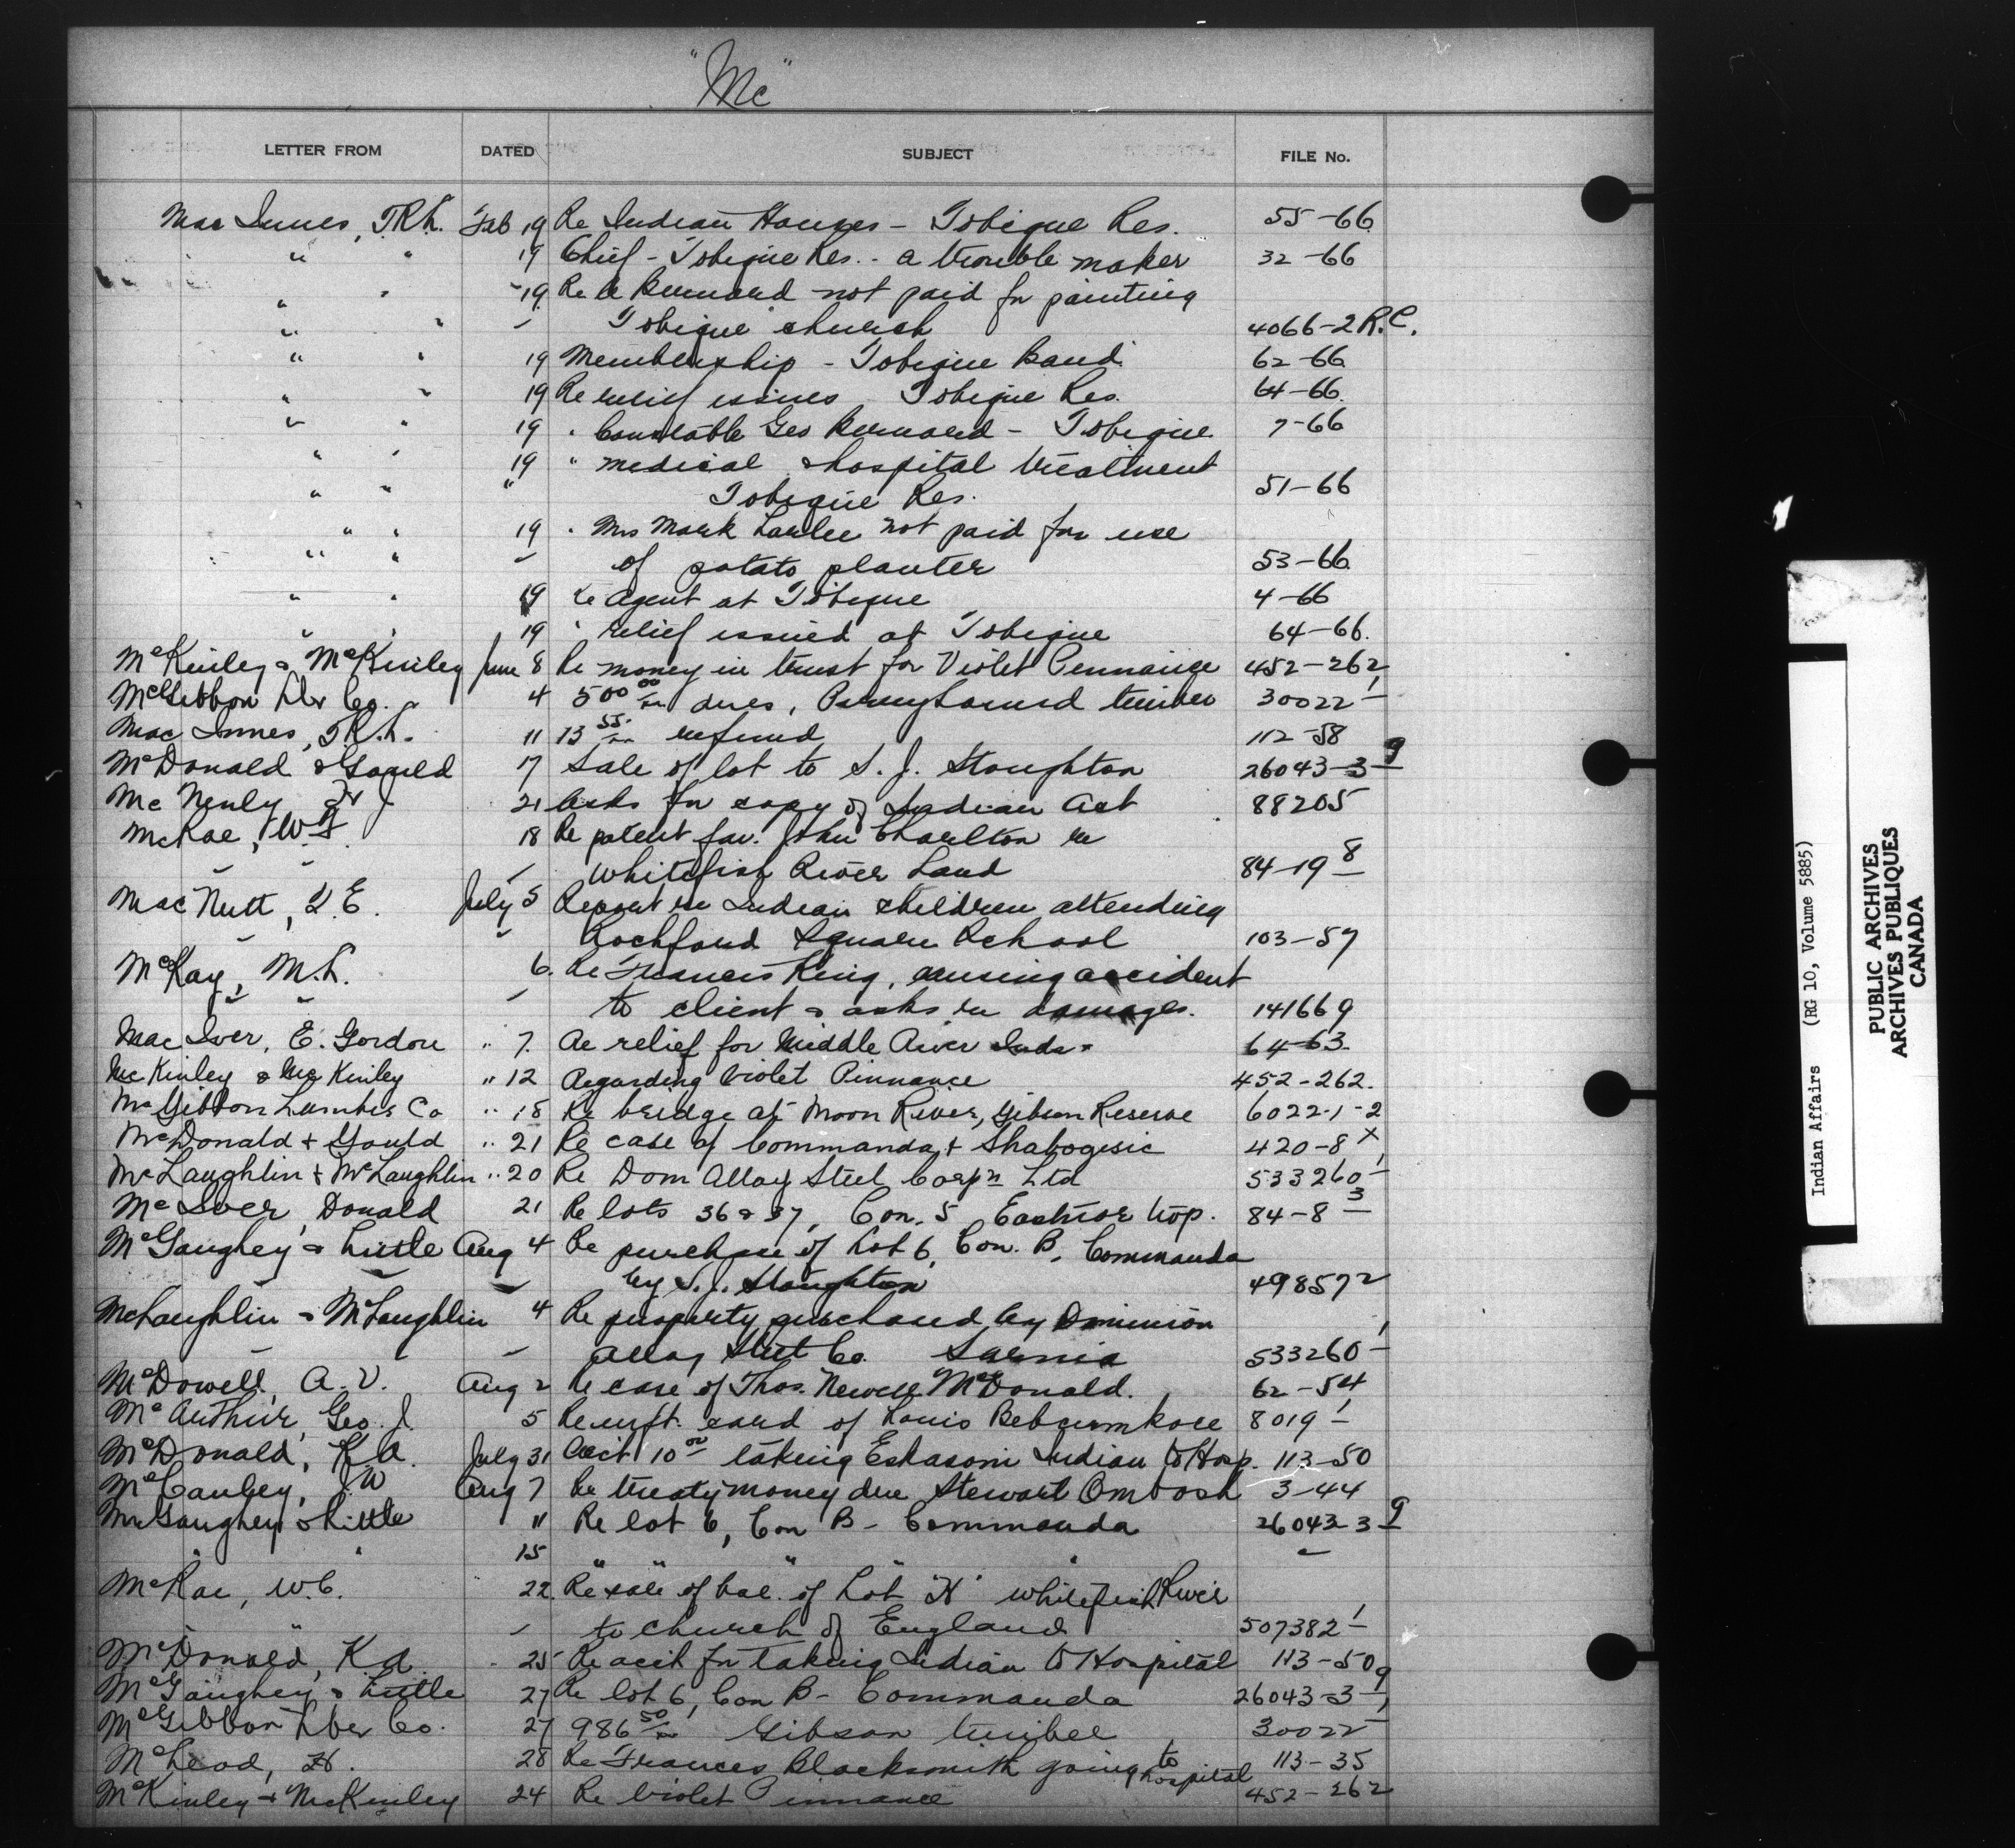 "Mc"
LETTER FROM DATED SUBJECT FILE No.
Mac Innes, T.R.L. Feb 19 Re Indian Houses - Tobique Res. 55-66
" " 19 Chief - Tobique Res. - a trouble maker 32-66
" " 19 Re Bernard not paid for painting
" " Tobique church 4066-2 R.C.
" " 19 Membership - Tobique Band 62-66
" " 19 Re relief issues Tobique Res. 64-66
" " 19 " Constable Geo Bernard - Tobique 7-66
" " 19 " medical & hospital treatment
" " " Tobique Res. 51-66
" " 19 " Mrs Mark Larlee not paid for use
" " of potato planter 53-66
" " 19 Re agent at Tobique 4-66
" " 19 " relief issued at Tobique 64-66.
McKinley & McKinley June 8 Re money in trust for Violet Pennance 452-262
McGibbon Lbr Co. 4 500 00 dues, timber 30022 1
Mac Innes, T.R.L. 11 13 55 refund 112-58
McDonald & Gould 17 Sale of lot to S. J. Stoughton 26043-3 9
21 Asks for copy of Indian Act 88205
McRae, W. 18 Re patent fav. John Charlton re
Whitefish River Land 84-19 8
Mac Nutt, L.E. July 5 Report re Indian children attending
" Rochford Square School 103-57
McKay, M.L. 6. Re Francis King, causing accident
to client & asks re damages. 141669
Mac Iver, E. Gordon " 7. Re relief for Middle River Inds - 64-63
McKinley & McKinley " 12 Regarding Violet Pinnance 452-262.
McGibbon Lumber Co " 18 Re bridge at Moon River, Gibson Reserve 6022-1-2
McDonald + Gould " 21 Re case of Commanda + Shabogesic 420-8 x
McLaughlin + McLaughlin " 20 Re Dom Alloy Steel Corpn Ltd 533260 1
McIver, Donald 21 Re lots 36 & 37, Con. 5 Eastnor twp. 84-8 3
McGaughey & Little Aug 4 Re purchase of Lot 6, Con. B, Commanda
by S.J. Stoughton 498572
McLaughlin & McLaughlin 4 Re property purchased by Dominion
Alloy Steel Co. Sarnia 533260 1
McDowell, A. V. Aug 2 Re case of Thos. Newell McDonald. 62-54
McArthur, Geo. J. 5 Re card of Louis 8019 1
McDonald, K.A. July 31 Acct 10 00 taking Eskasoni Indian to Hosp. 113-50
McCauley, J.W Aug 7 Re treaty money due Stewart Ombosh 3-44
McGaughey & Little 11 Re lot 6, Con B - Commanda 26043-3 9
" " 15 " " "
McRae, W.C. 22. Re sale of bal. of Lot "H" Whitefish River
to church of England 507382 1
McDonald, K A 25 Re acct for taking Indian to Hospital 113-50
McGaughey & Little 27 Re lot 6, Con B - Commanda 26043-3 9
McGibbon Lber Co. 27 986 50 Gibson timber 30022 1
McLeod, H. 28 Re Frances Blacksmith going to hospital 113-35
McKinley + McKinley 24 Re Violet Pinnance 452-262
Indian Affairs (RG 10, Volume 5885)
PUBLIC ARCHIVES
ARCHIVES PUBLIQUES
CANADA